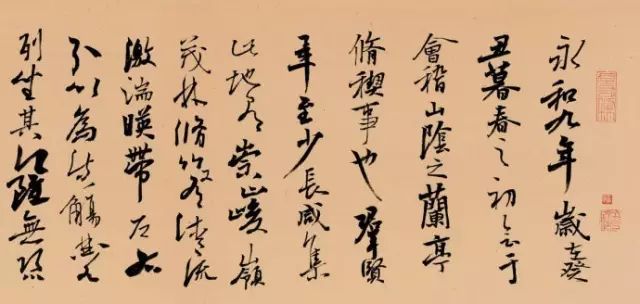 永和九年歲在癸
丑暮春之初會于
會稽山陰之蘭亭
脩禊事也羣賢
畢至少長咸集
此地有崇山峻嶺
茂林脩竹又有清流
激湍暎帶左右
引以為流觴曲水
列坐其次雖無絲